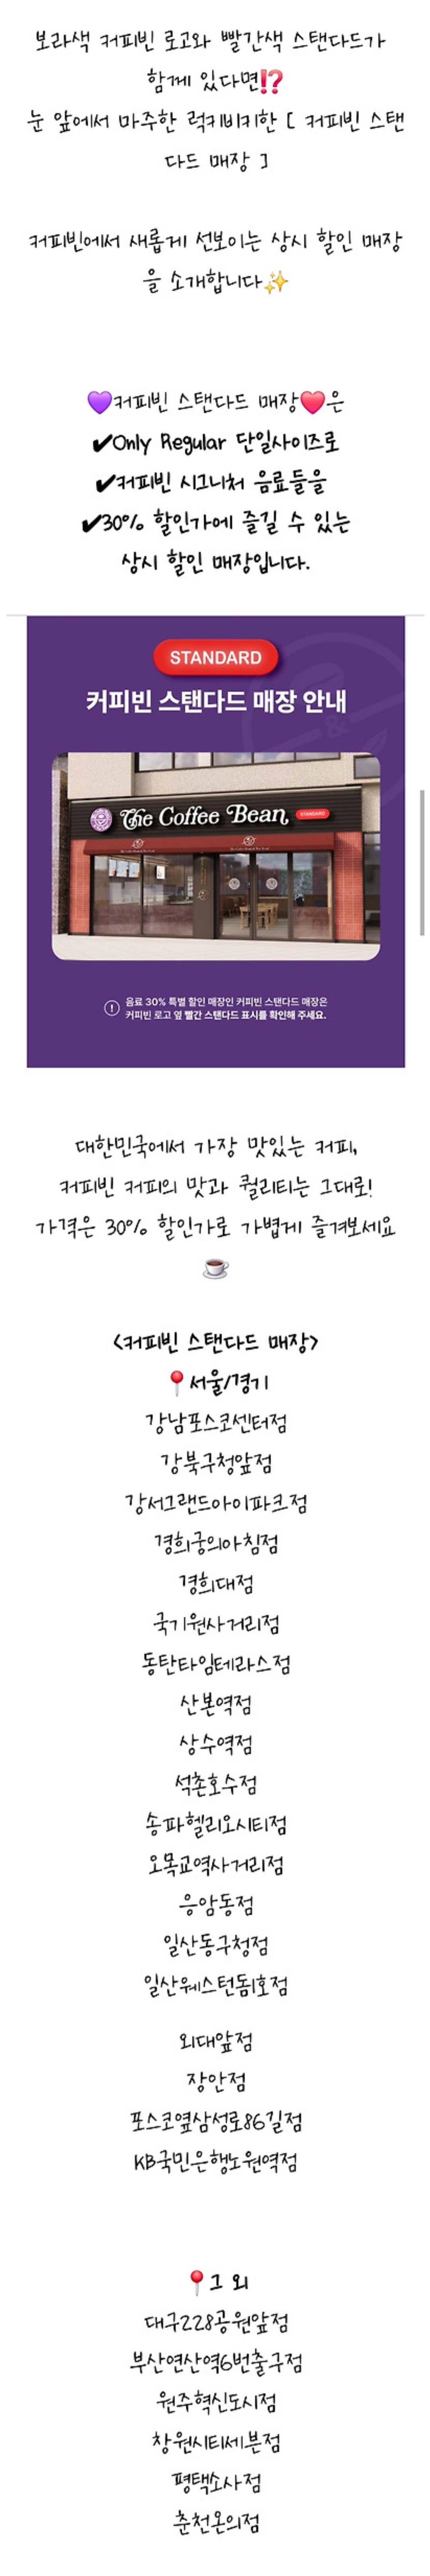 보라색 커피빈 로고와 빨간색 스탠다드가
함께 있다면⁉️
눈 앞에서 마주한 럭키비키한 [ 커피빈 스탠
다드 매장 ]
커피빈에서 새롭게 선보이는 상시 할인 매장
을 소개합니다✨
💜커피빈 스탠다드 매장❤️은
✔Only Regular 단일사이즈로
✔커피빈 시그니처 음료들을
✔30% 할인가에 즐길 수 있는
상시 할인 매장입니다.
STANDARD
커피빈 스탠다드 매장 안내
The Coffee Bean STANDARD
음료 30% 특별 할인 매장인 커피빈 스탠다드 매장은
커피빈 로고 옆 빨간 스탠다드 표시를 확인해 주세요.
대한민국에서 가장 맛있는 커피,
커피빈 커피의 맛과 퀄리티는 그대로!
가격은 30% 할인가로 가볍게 즐겨보세요
☕
<커피빈 스탠다드 매장>
📍서울/경기
강남포스코센터점
강북구청앞점
강서그랜드아이파크점
경희궁의아침점
경희대점
국기원사거리점
동탄타임테라스점
산본역점
상수역점
석촌호수점
송파헬리오시티점
오목교역사거리점
응암동점
일산동구청점
일산웨스턴돔1호점
외대앞점
장안점
포스코옆삼성로86길점
KB국민은행노원역점
📍그 외
대구228공원앞점
부산연산역6번출구점
원주혁신도시점
창원시티세븐점
평택소사점
춘천온의점